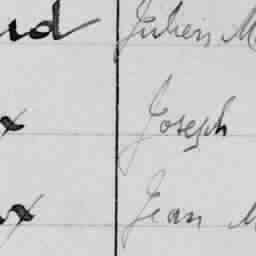 ud Julien M
x Joseph
x Jean M